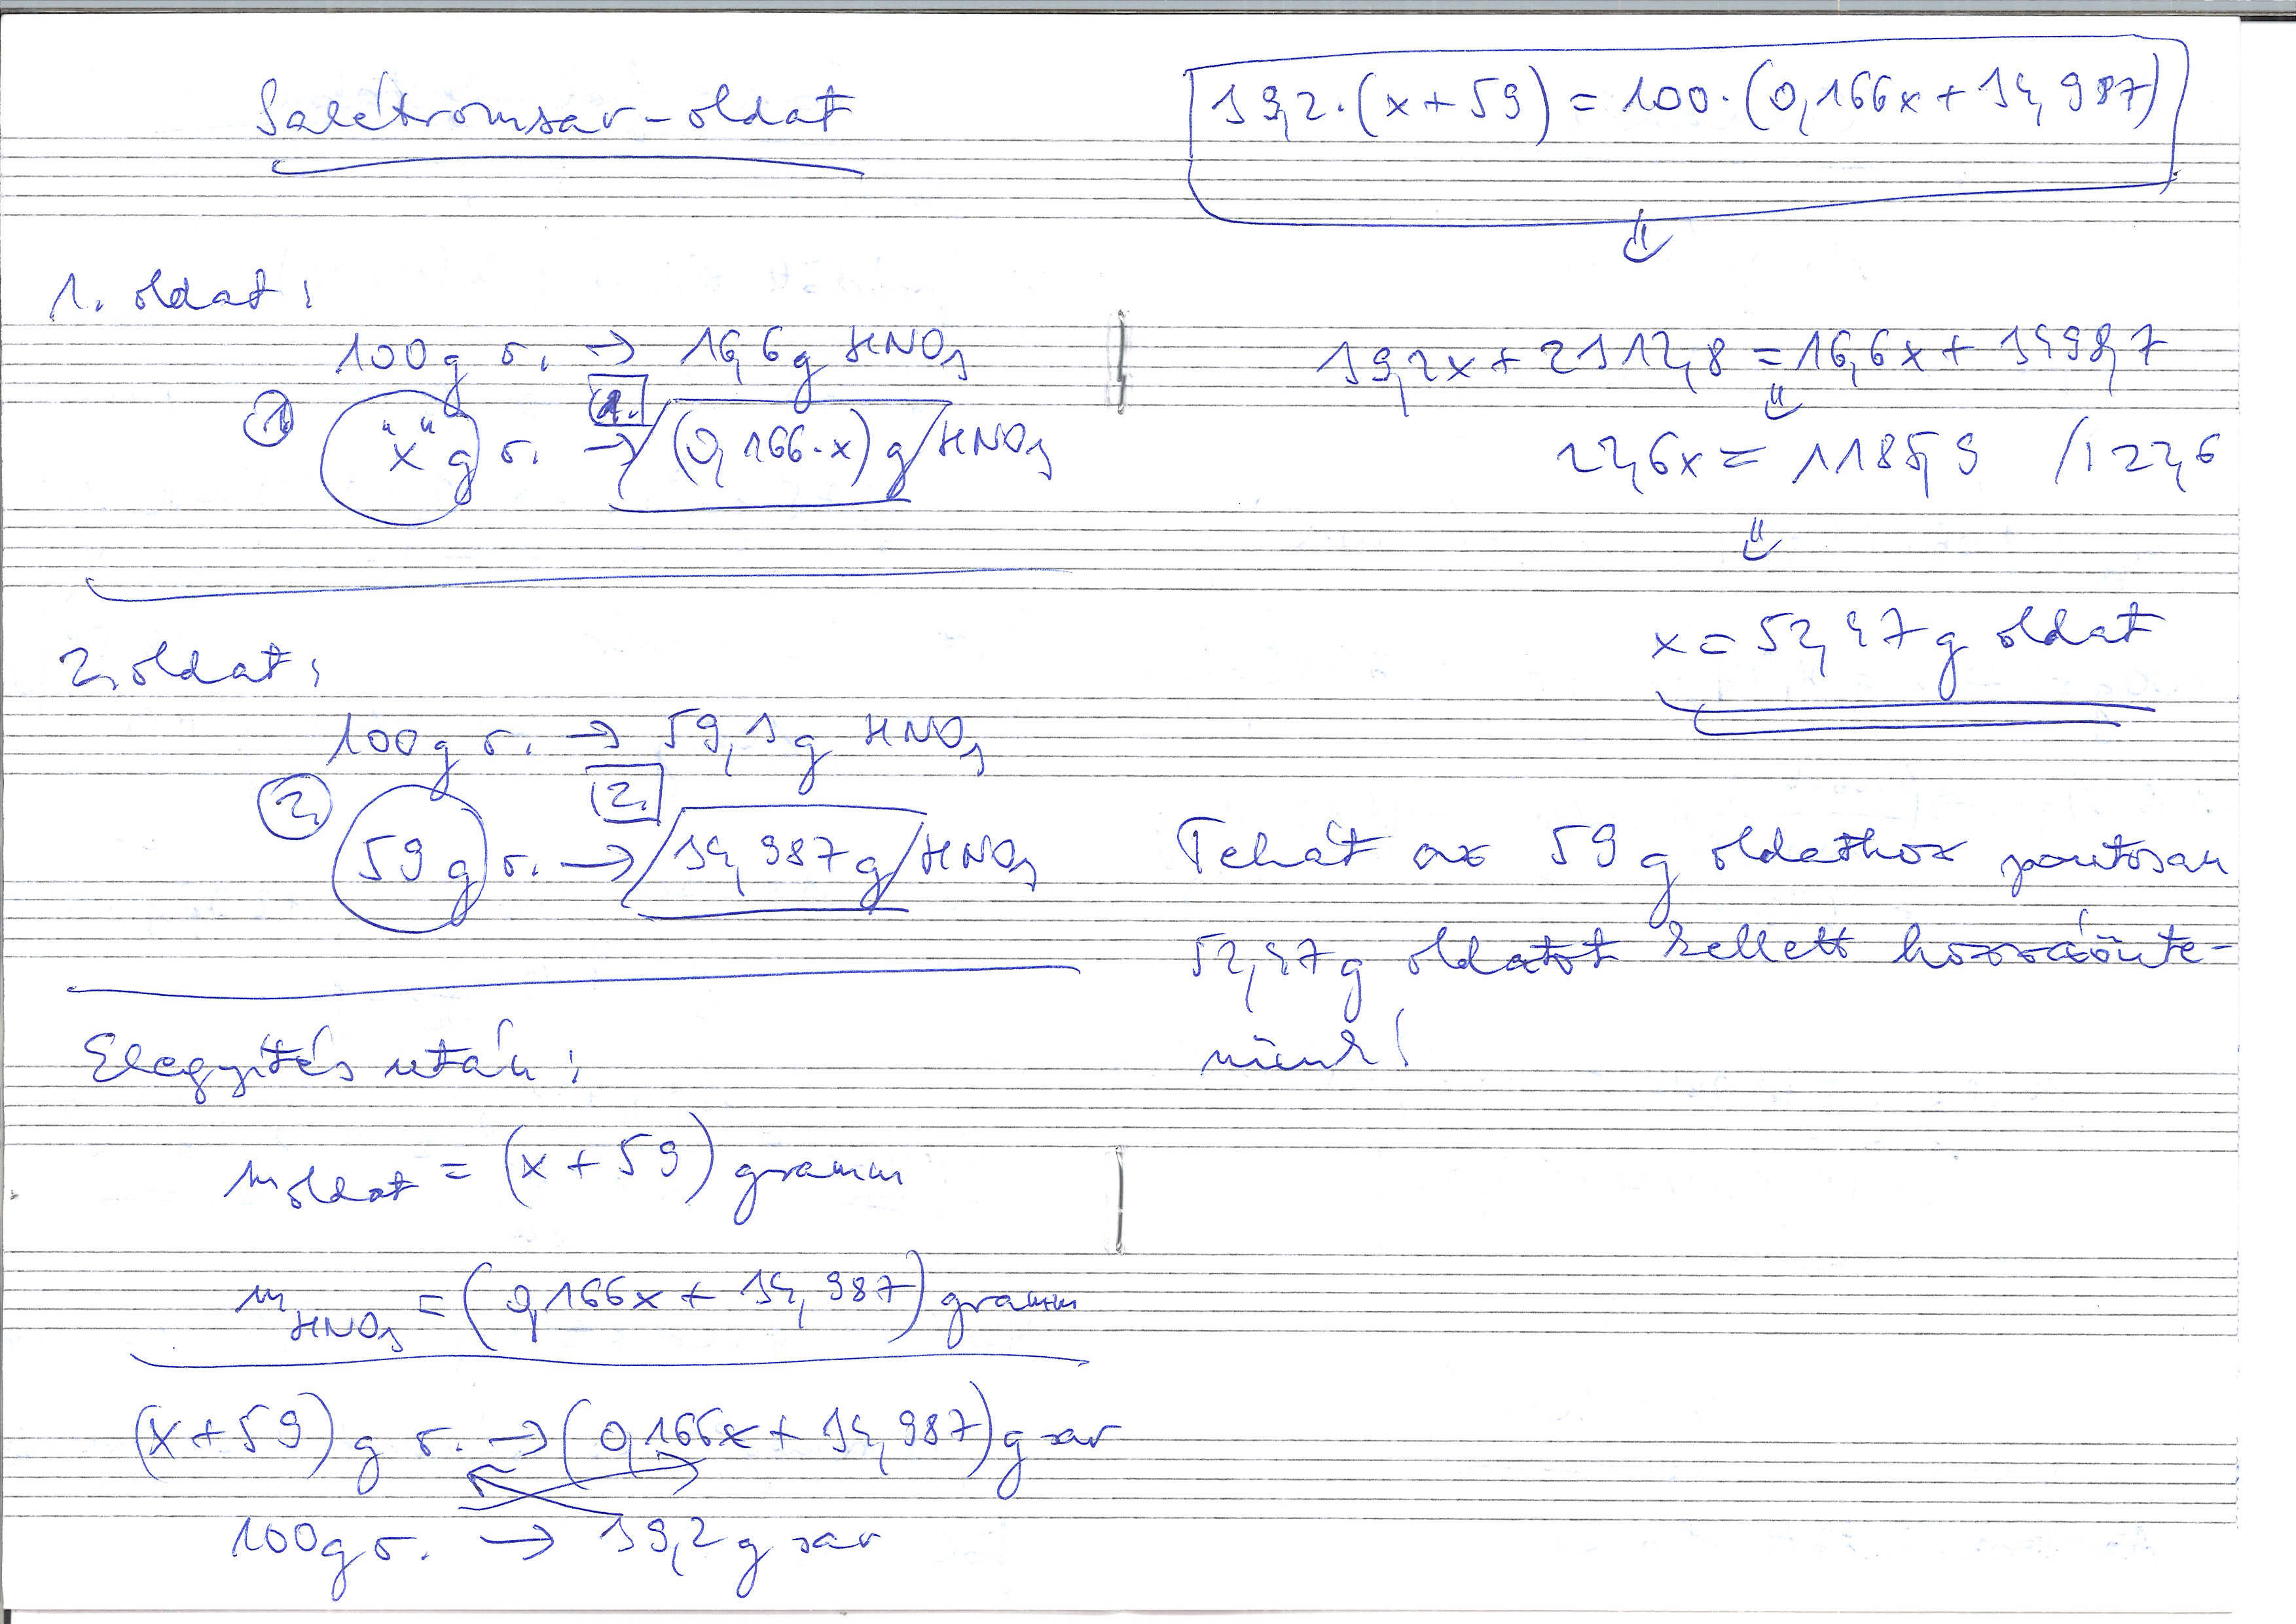 Salétromsav-oldat
1. oldat:
100g o. → 16,6g HNO3
1. "x" g o. → (0,166·x) g HNO3
1.
2. oldat:
100g o. → 59,3g HNO3
2. 59 g o. → 34,987g HNO3
2.
Elegyítés után:
moldat = (x+59) gramm
mHNO3 = (0,166x + 34,987) gramm
(x+59) g o. → (0,166x + 34,987) g sav
100g o. → 39,2g sav
39,2·(x+59) = 100·(0,166x + 34,987)
⇓
39,2x + 2312,8 = 16,6x + 3498,7
⇓
22,6x = 1185,9 /:22,6
⇓
x = 52,47g oldat
Tehát az 59 g oldathoz pontosan
52,47g oldatot kellett hozzáönte-
nünk!